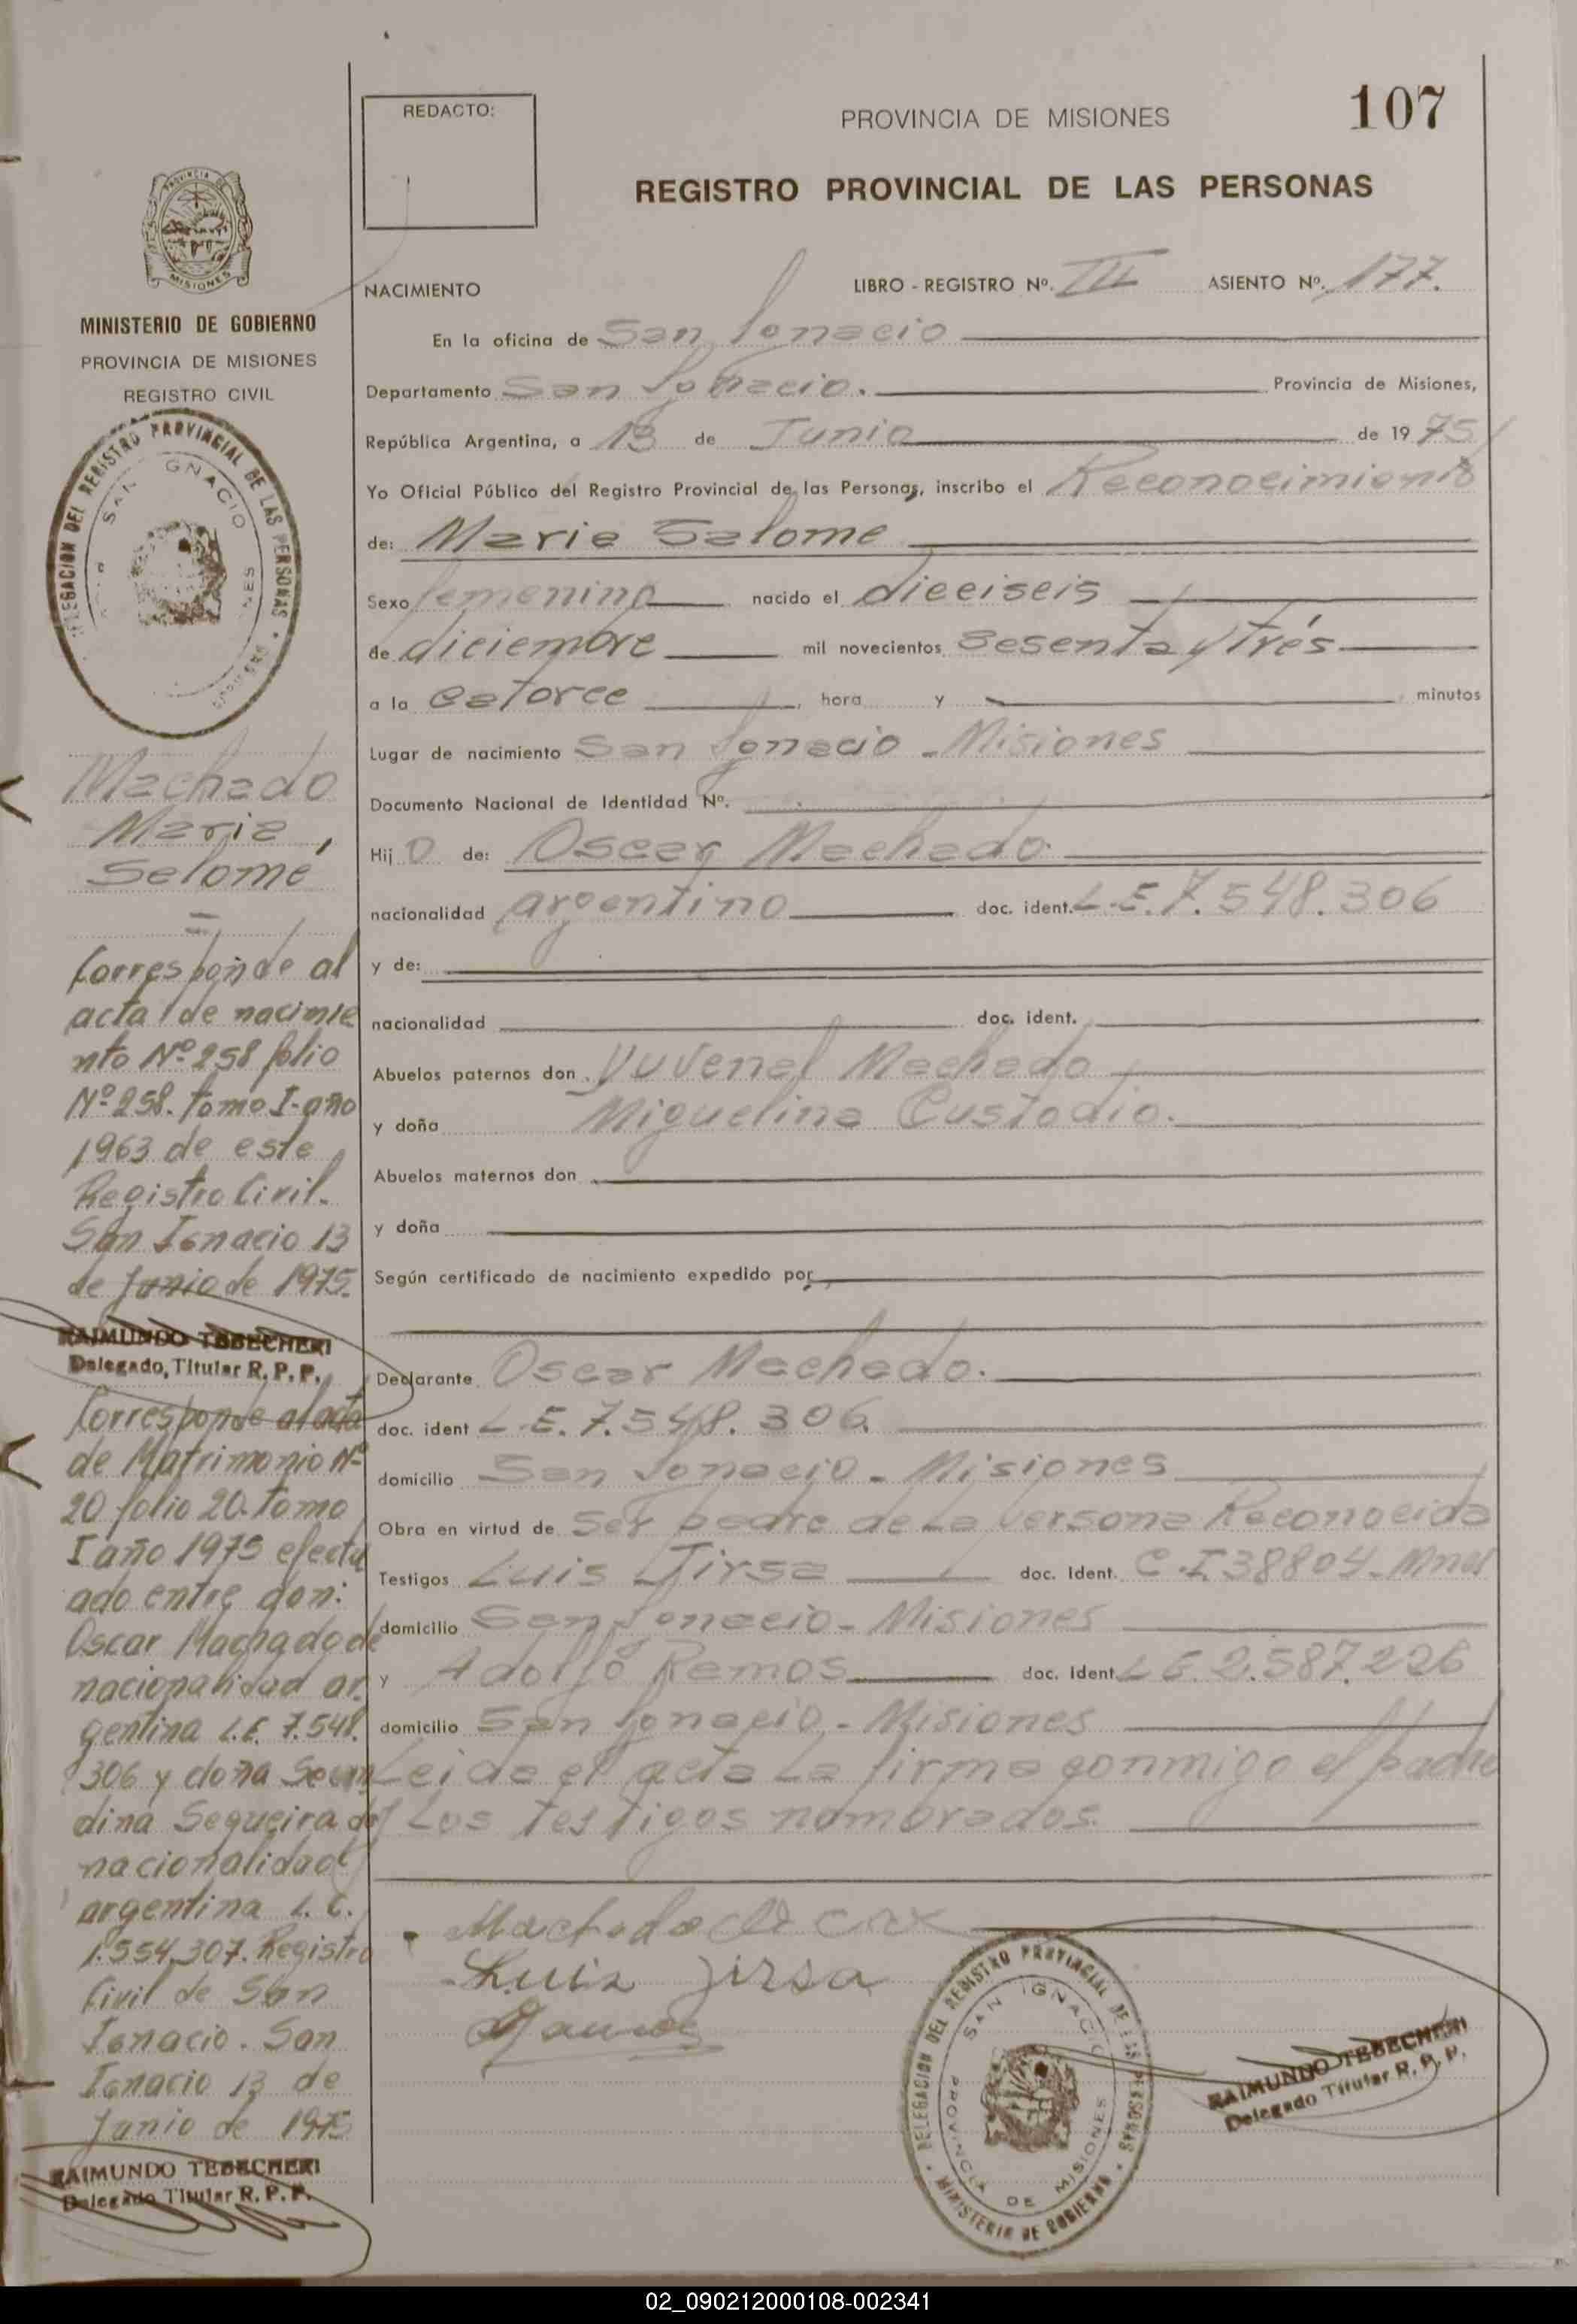 REDACTO:
PROVINCIA DE MISIONES
107
REGISTRO PROVINCIAL DE LAS PERSONAS
PROVINCIA DE
MISIONES
MINISTERIO DE GOBIERNO
PROVINCIA DE MISIONES
REGISTRO CIVIL
DELEGACION DEL REGISTRO PROVINCIAL DE LAS PERSONAS
SAN IGNACIO
NACIMIENTO LIBRO - REGISTRO Nº. III ASIENTO Nº. 177.
En la oficina de San Ignacio
Departamento San Ignacio. Provincia de Misiones,
República Argentina, a 13 de Junio de 1975
Yo Oficial Público del Registro Provincial de las Personas, inscribo el Reconocimiento
de: Maria Salome
Sexo femenino nacido el dieciseis
de diciembre mil novecientos sesenta y trés
a la catorce hora y minutos
Lugar de nacimiento San Ignacio - Misiones
Documento Nacional de Identidad Nº.
Hijo de: Oscar Machado
nacionalidad argentino doc. ident. L.E. 7.548.306
y de:
nacionalidad doc. ident.
Abuelos paternos don Yuvenal Machado
y doña Miguelina Custodio.
Abuelos maternos don
y doña
Según certificado de nacimiento expedido por
Declarante Oscar Machado.
doc. ident L.E. 7.548.306.
domicilio San Ignacio - Misiones
Obra en virtud de ser padre de La Persona Reconocida
Testigos Luis Jirsa doc. Ident. C.I 38804 - Mnes
domicilio San Ignacio - Misiones
y Adolfo Ramos doc. Ident L E. 2.587.226
domicilio San Ignacio - Misiones
Leida el acta La firma conmigo el padre
y Los testigos nombrados.
Machado
Luis Jirsa
DELEGACION DEL REGISTRO PROVINCIAL DE LAS PERSONAS
MINISTERIO DE GOBIERNO
SAN IGNACIO
PROVINCIA DE MISIONES
RAIMUNDO TEBECHERI
Delegado Titular R. P. P.
Machado
Maria
Salomé
Corresponde al
acta de nacimie
nto Nº 258 folio
Nº 258. tomo I- año
1963 de este
Registro Civil.
San Ignacio 13
de Junio de 1975.
RAIMUNDO TEBECHERI
Delegado Titular R. P. P.
Corresponde al acta
de Matrimonio Nº
20 folio 20. tomo
I año 1975 efectu
ado entre don:
Oscar Machado de
nacionalidad ar.
gentina L.E. 7.548.
306 y doña Secun
dina Sequeira de
nacionalidad
argentina L. C.
1.554.307. Registro
Civil de San
Ignacio. San
Ignacio 13 de
Junio de 1975
RAIMUNDO TEBECHERI
Delegado Titular R. P. P.
02_090212000108-002341